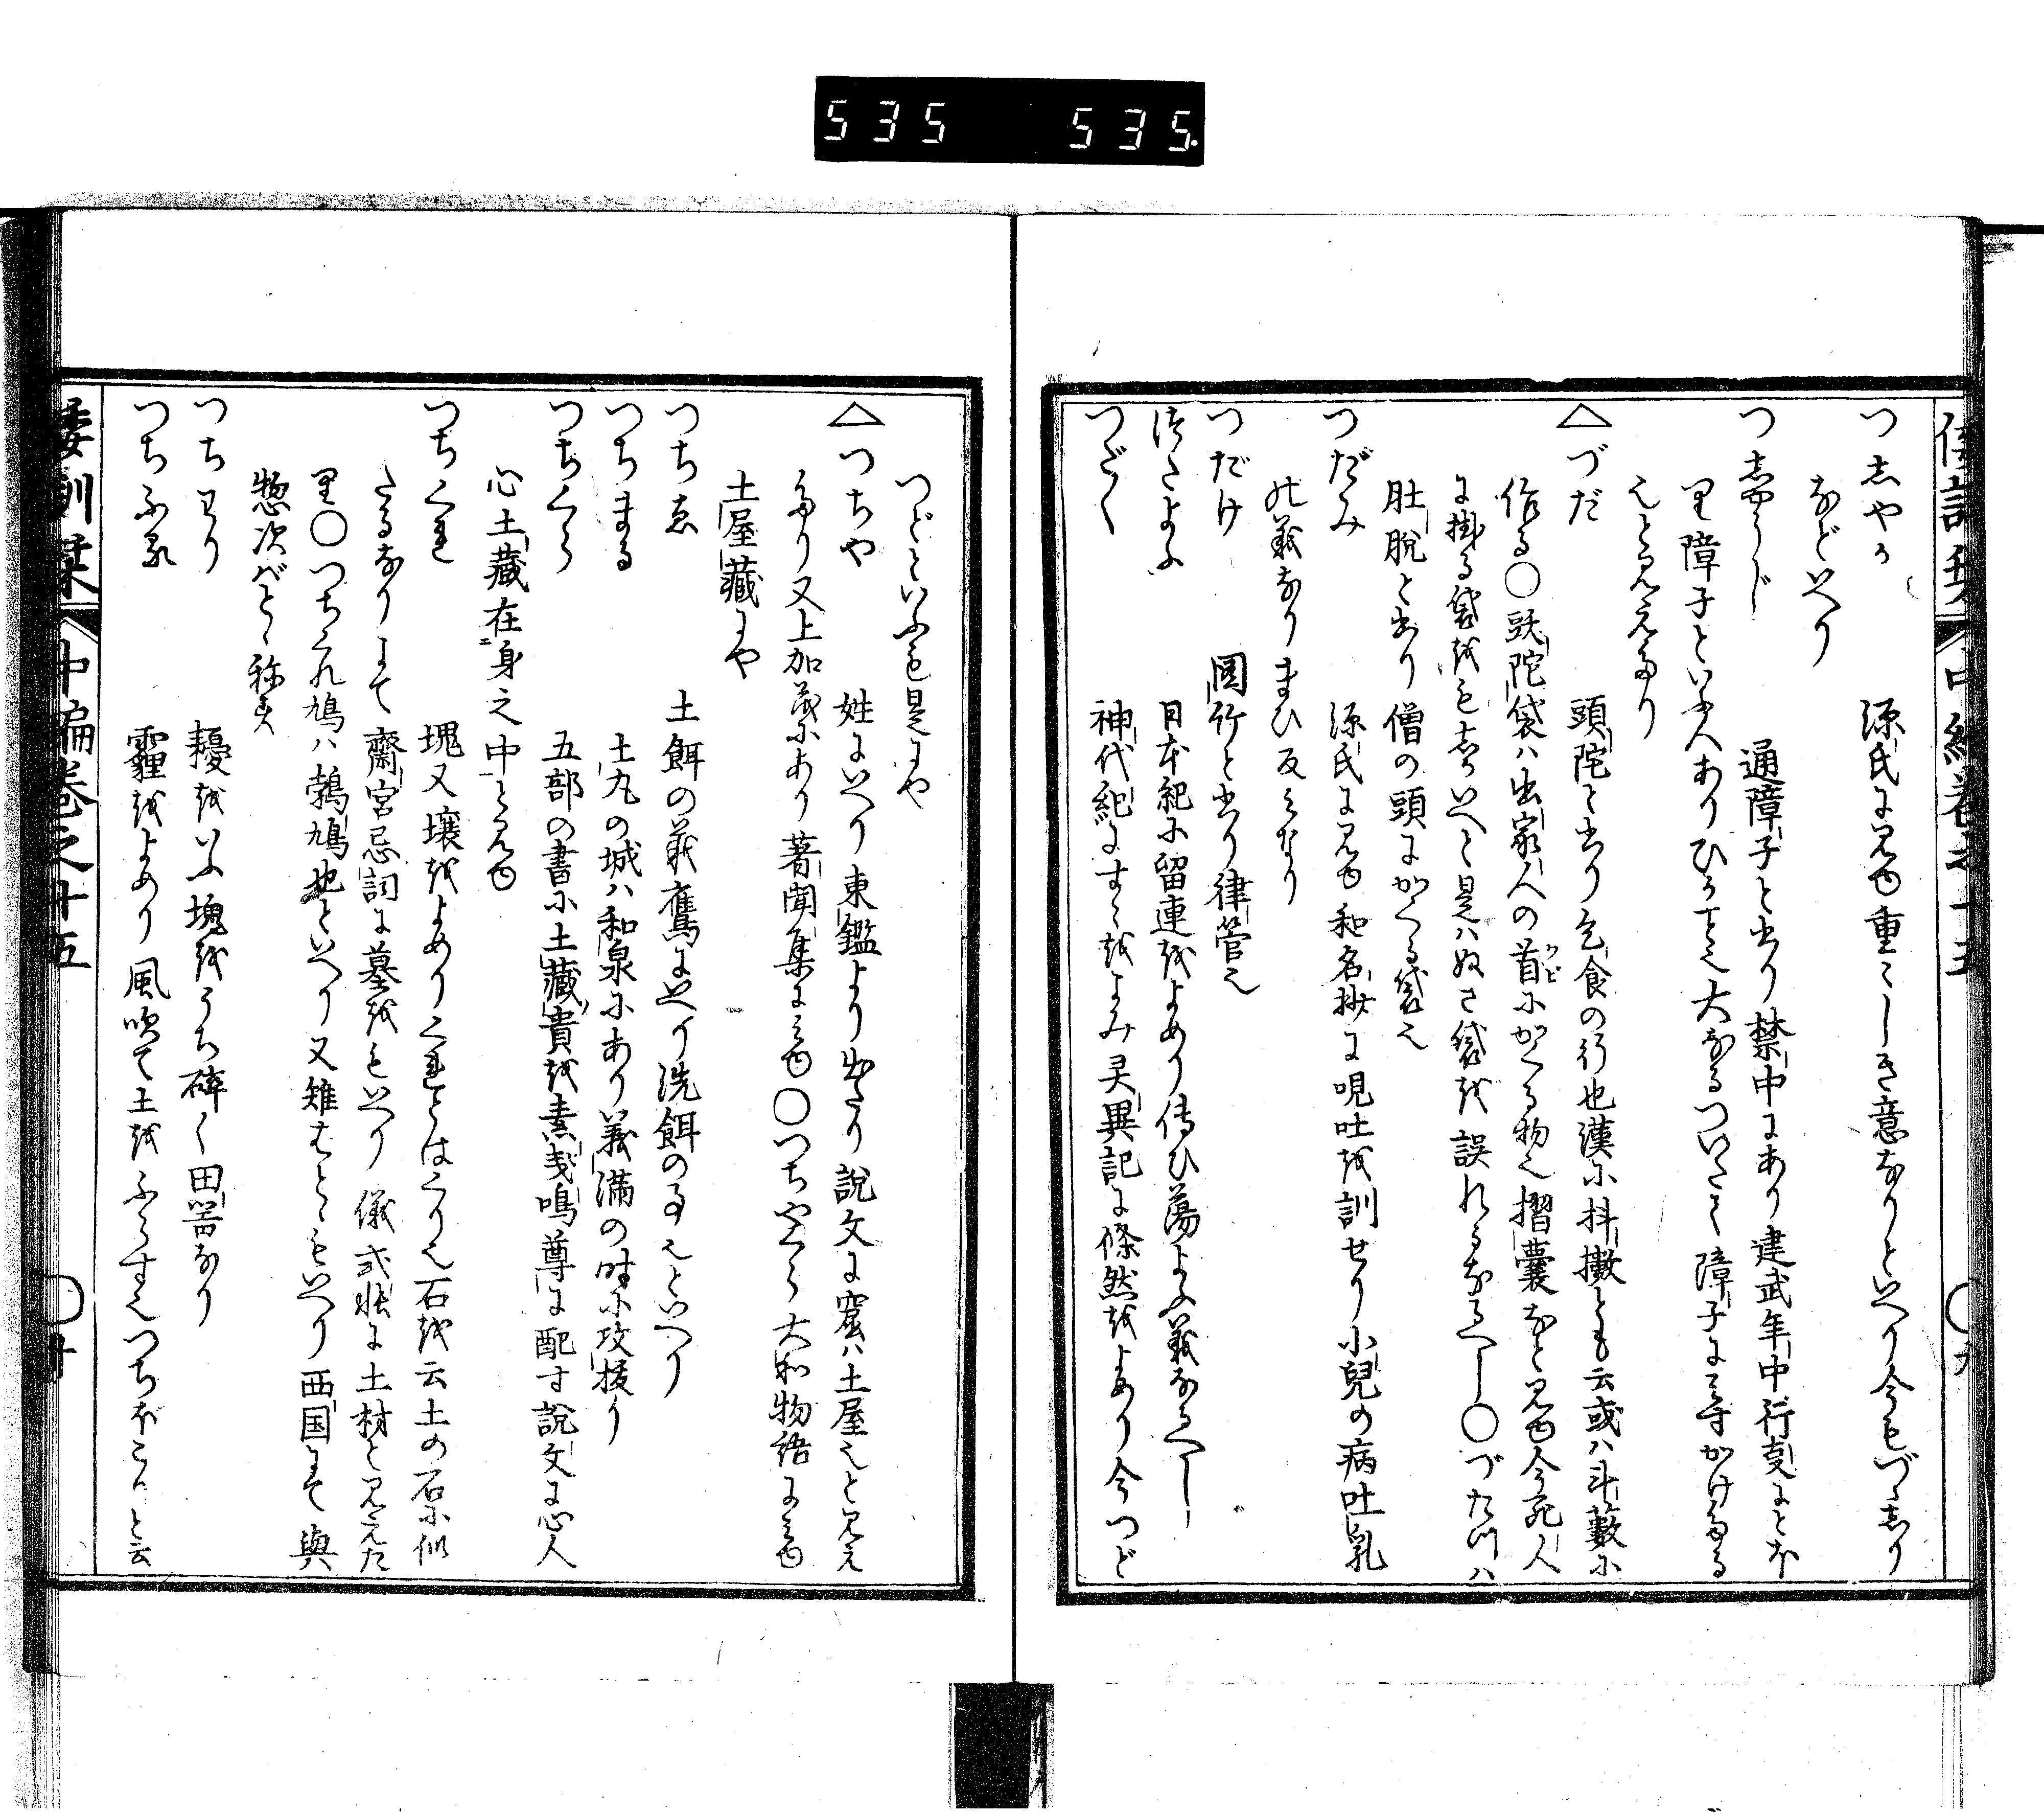 535 535.
つしやか 源氏に見ゆ重々しき意なりといへり今もづゝしり
などいへり
つしやうじ 通障子と書り禁中にあり建武年中行事にとほ
り障子といふ人ありひが事也大なるついたて障子に等かけたる
也と見えたり
△づだ 頭陀と書り乞食の行也漢に抖擻とも云或ハ斗藪に
作る○頭陀袋ハ出家人の首にかくる物也摺嚢など見ゆ今死人
に掛る袋をもしかいへと是ハぬさ袋を誤れるなるへし○づた川ハ
肚脱と書り僧の頭にかくる袋也
つだみ 源氏に見ゆ和名抄に哯吐を訓せり小兒の病吐乳
の義なりまひ反みなり
つだけ 圓竹と書り律管也
つたよふ 日本紀に留連をよめり傳ひ蕩よふ義なるへし
つだ〱 神代紀にすゝをよみ灵異記に條然をよめり今つど
つどといふも是にや
△つちや 姓にいへり東鑑より出たり說文に窰ハ土屋也と見え
たり又上加茂にあり著聞集に見ゆ○つちやくら大和物語に見ゆ
土屋藏にや
つちゑ 土餌の義鷹にいへり洗餌の事也といへり
つちまる 土丸の城ハ和泉にあり義満の時に攻拔り
つちくら 五部の書に土藏貴を素戔嗚尊に配す說文に心人
心土藏在身之中と見ゆ
つちくれ 塊又壤をよめりくれとはくりも石を云土の石に似
たるなりよて齋宮忌詞に墓をもいへり儀式帳に土村と見えた
り○つちくれ鳩ハ鵓鳩也といへり又雉はとゝもいへり西国にて與
惣次ばとゝ称す
つちわり 耰をいふ塊をうち碎く田器なり
つちふる 霾をよめり風吹て土をふらす也つちほこりと云
倭訓栞 中編卷之十五